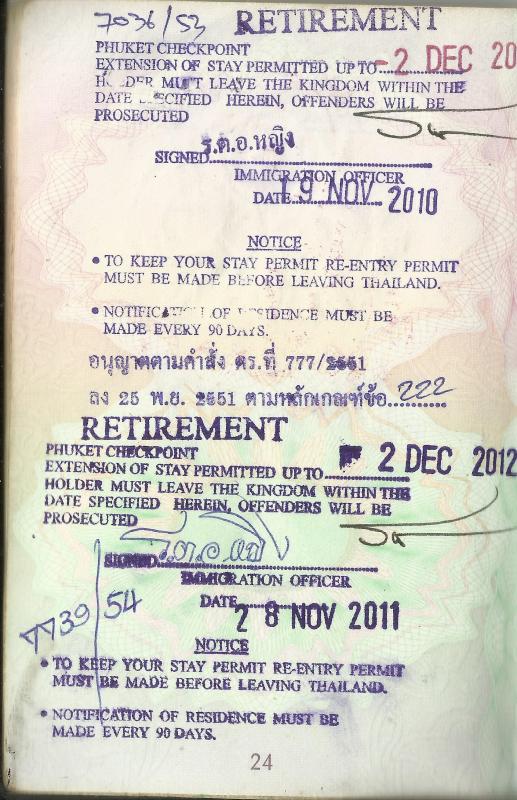 7036/53
RETIREMENT
PHUKET CHECKPOINT
EXTENSION OF STAY PERMITTED UP TO -2 DEC 20
HOLDER MUST LEAVE THE KINGDOM WITHIN THE
DATE SPECIFIED HEREIN, OFFENDERS WILL BE
PROSECUTED
ร.ต.อ.หญิง
SIGNED
IMMIGRATION OFFICER
DATE 19 NOV 2010
NOTICE
• TO KEEP YOUR STAY PERMIT RE-ENTRY PERMIT
MUST BE MADE BEFORE LEAVING THAILAND.
• NOTIFICATION OF RESIDENCE MUST BE
MADE EVERY 90 DAYS.
อนุญาตตามคำสั่ง ตร.ที่ 777/2551
ลง 25 พ.ย. 2551 ตามหลักเกณฑ์ข้อ 222
RETIREMENT
PHUKET CHECKPOINT
EXTENSION OF STAY PERMITTED UP TO 2 DEC 2012
HOLDER MUST LEAVE THE KINGDOM WITHIN THE
DATE SPECIFIED HEREIN, OFFENDERS WILL BE
PROSECUTED
SIGNED
IMMIGRATION OFFICER
7739/54
DATE 28 NOV 2011
NOTICE
• TO KEEP YOUR STAY PERMIT RE-ENTRY PERMIT
MUST BE MADE BEFORE LEAVING THAILAND.
• NOTIFICATION OF RESIDENCE MUST BE
MADE EVERY 90 DAYS.
24